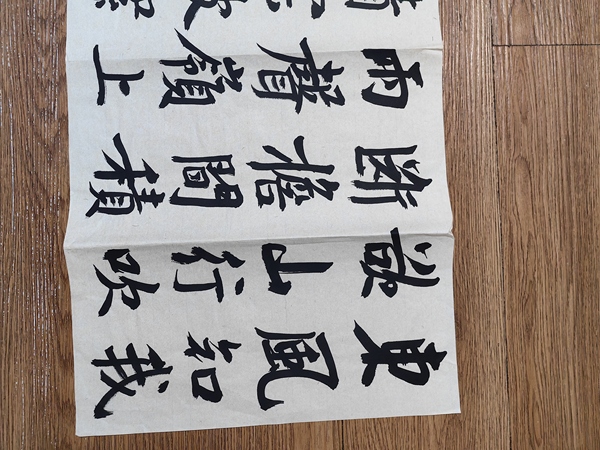 東風知我
欲山行吹
斷檐間積
雨聲嶺上